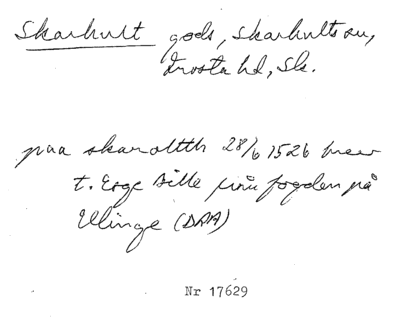 Skarhult gods, Skarhults sn,
Frosta hd, Sk.
paa skaroltth 28/6 1526 brev
t. Eske Bille från fogden på
Ellinge (DRA)
Nr 17629